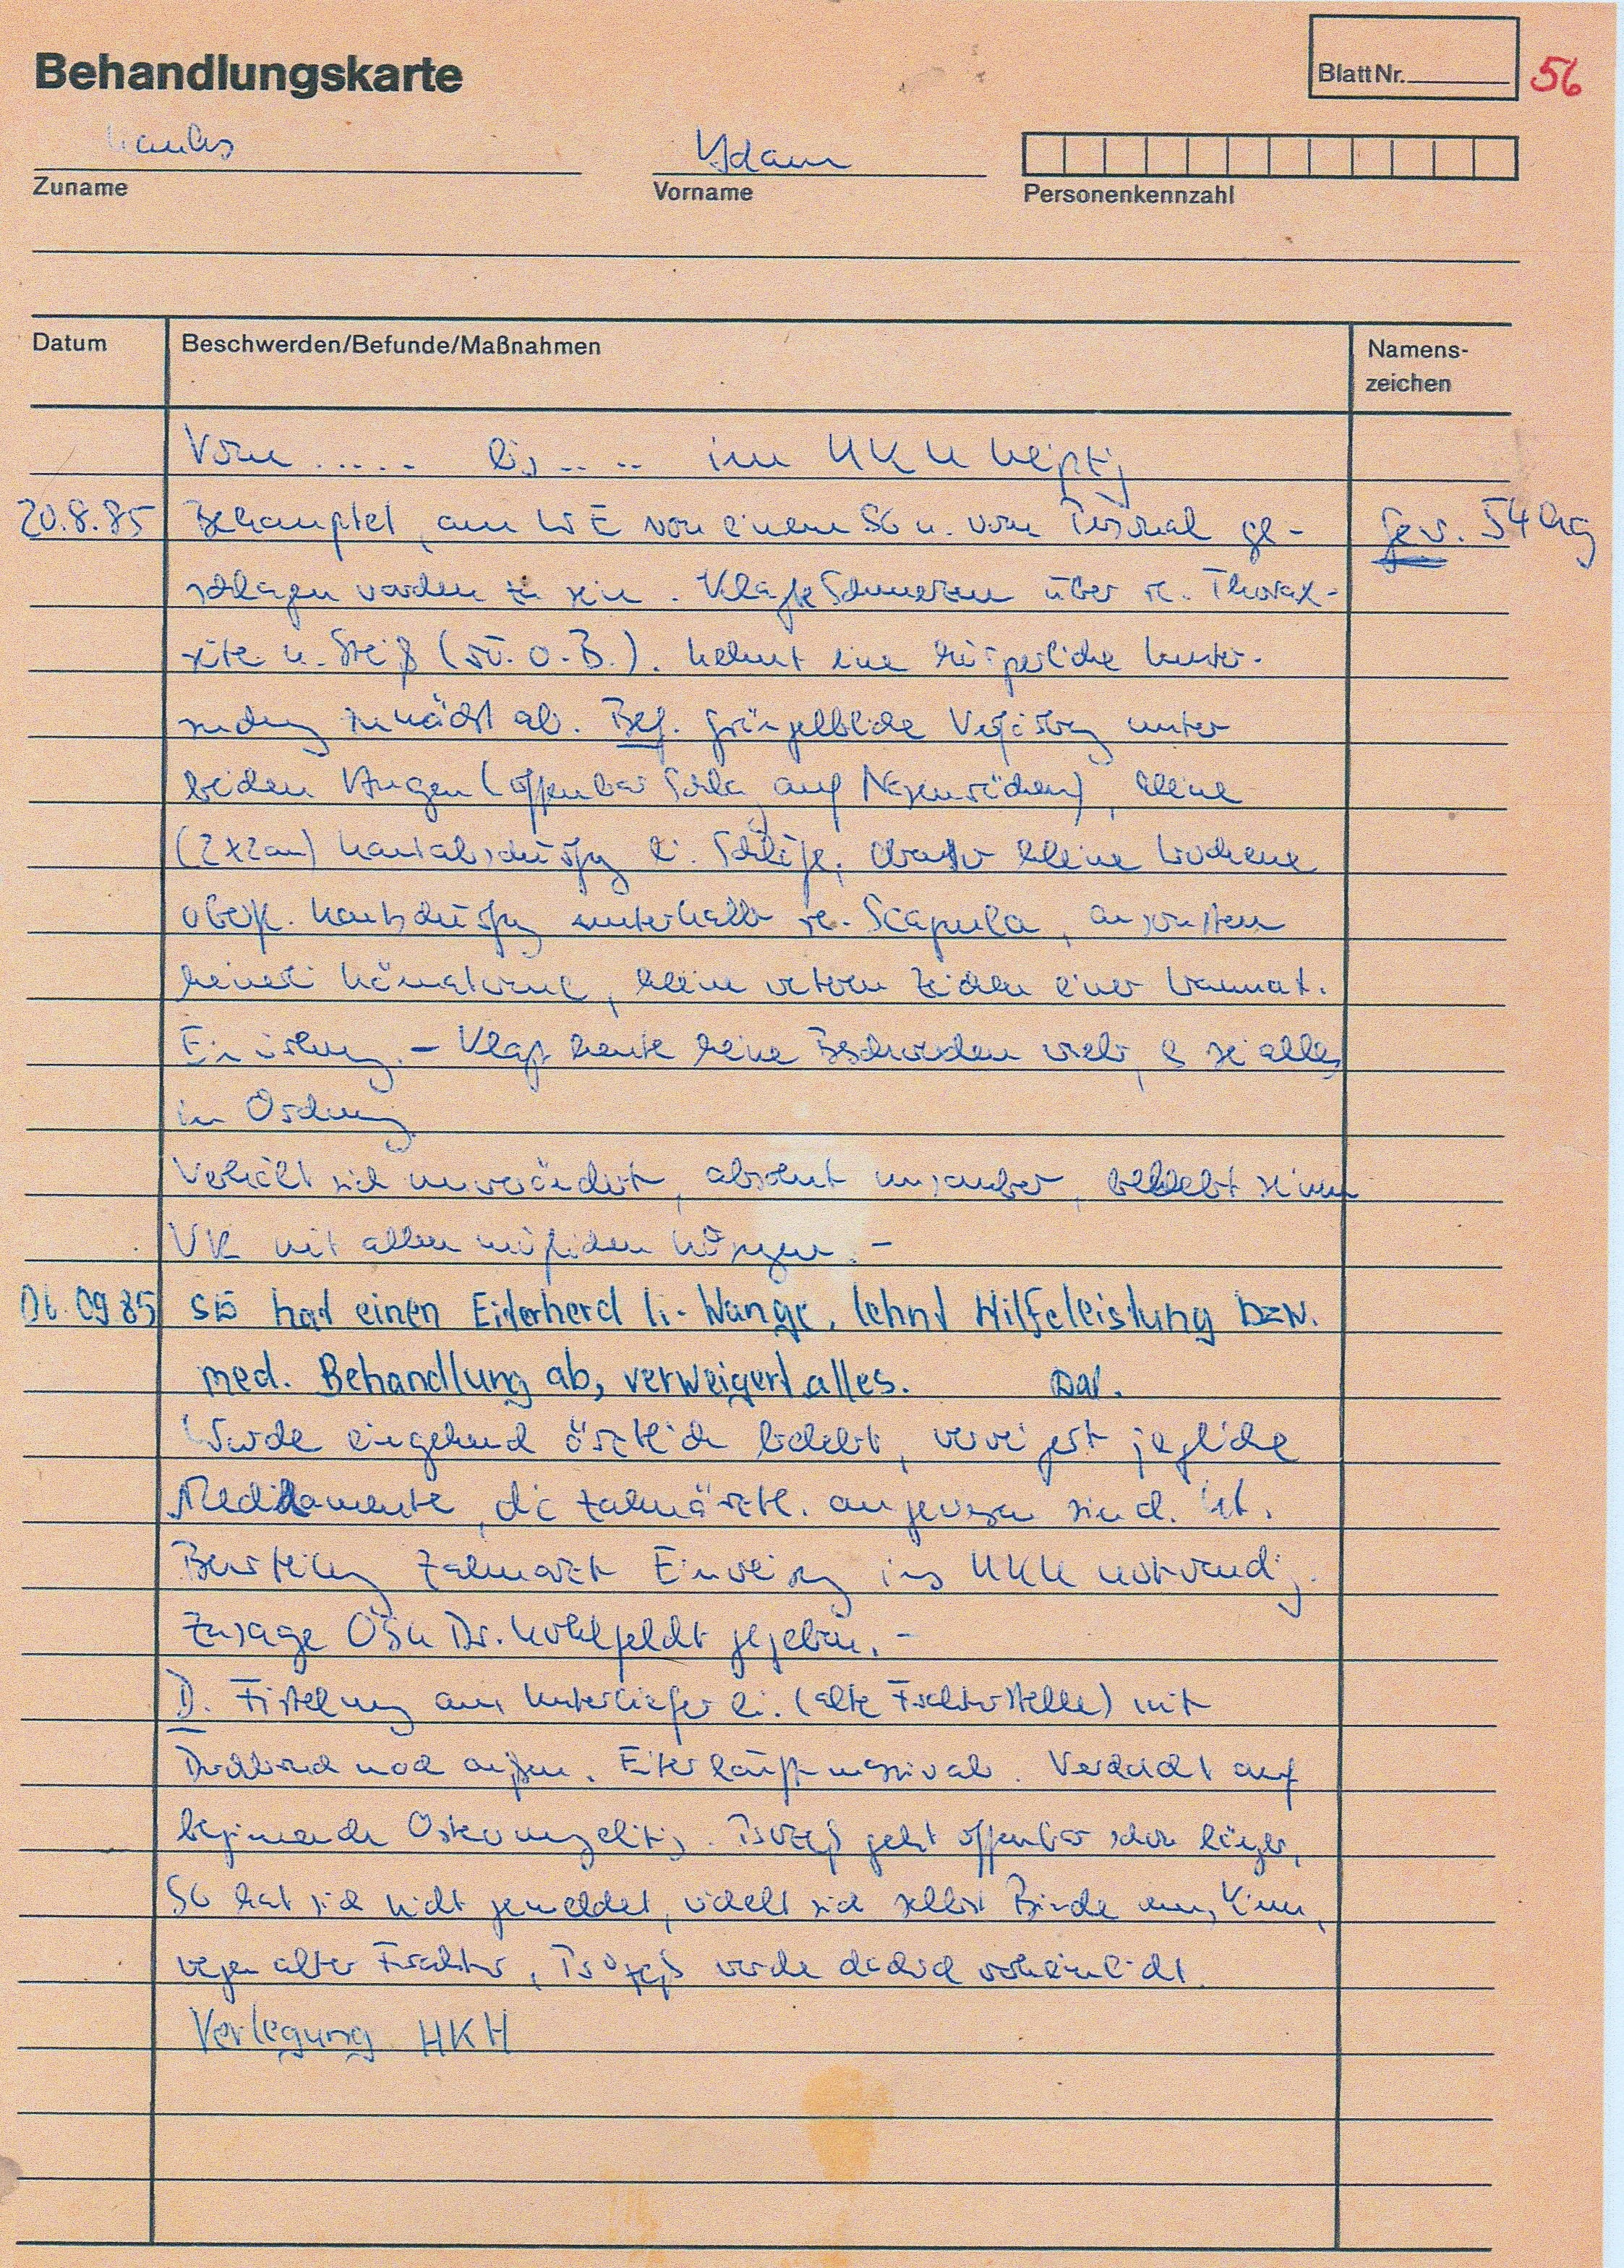 Behandlungskarte
Blatt Nr. 56
Adam
Zuname Vorname Personenkennzahl
Datum Beschwerden/Befunde/Maßnahmen Namens-
zeichen
Vom ..... bis .. .. im HKH
20.8.85 Behauptet, am WE von einem SG u. vom Personal ge- Gew. 54 kg
schlagen worden zu sein. Klagte Schmerzen über re. Thorax-
seite u. Steiß (Rö. o. B.). Lehnt eine körperliche Unter-
suchung zunächst ab. Bef. grüngelbliche Verfärbung unter
beiden Augen (offenbar Schlag auf Nasenrücken), kleine
(2x2cm) Hautabschürfung li. Schläfe, kleine trockene
oberfl. Hautschürfung unterhalb re. Scapula, ansonsten
keinerlei Hämatome, keine weiteren Zeichen einer traumat.
Einwirkung. - Klagt heute keine Beschwerden mehr, es sei alles
in Ordnung.
Verhält sich unverändert, absolut unsauber, beklebt seinen
VR mit allen möglichen
01.09.85 SG hat einen Eiterherd li. Wange, lehnt Hilfeleistung bzw.
med. Behandlung ab, verweigert alles.
Wurde eingehend ärztlich belehrt, verweigert jegliche
Medikamente, die zahnärztl. angewiesen sind. Lt.
Beurteilung Zahnarzt Einweisung ins HKH notwendig.
Zusage OSL Dr. gegeben. -
D. Fistelung am Unterkiefer li. (alte Frakturstelle) mit
Durchbruch nach außen. Eiter läuft massiv ab. Verdacht auf
beginnende Osteomyelitis. Prozeß geht offenbar schon länger,
SG hat sich nicht gemeldet, wickelt sich selbst Binde ums Kinn,
wegen alter Fraktur, Prozeß wurde dadurch verheimlicht.
Verlegung HKH